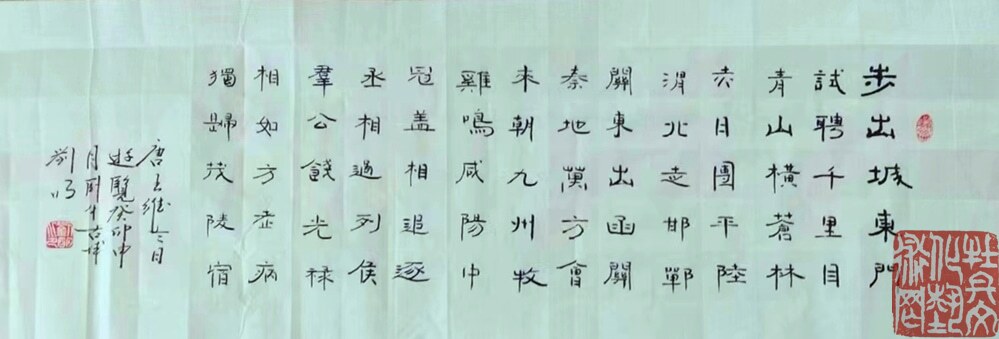 步出城東門
試聘千里目
青山橫蒼林
赤日團平陸
渭北走邯鄲
關東出函關
秦地萬方會
来朝九州牧
雞鳴咸陽中
冠盖相追逐
丞相過列侯
羣公餞光祿
相如方老病
獨歸茂陵宿
唐王維冬日
遊覽癸卯中
月
劉